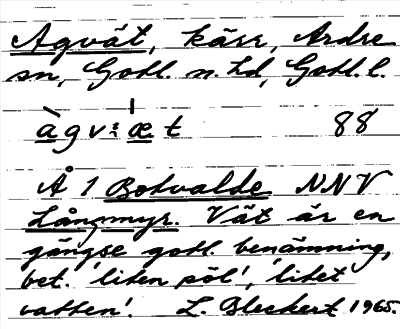 Agvät, kärr, Ardre
sn, Gotl. n. hd, Gotl. l.
àgv:æt 88
Å 1 Botvalde NNV
Långmyr. Vät är en
gängse gotl. benämning,
bet. 'liten pöl', 'litet
vatten'. L. Bleckert 1965.